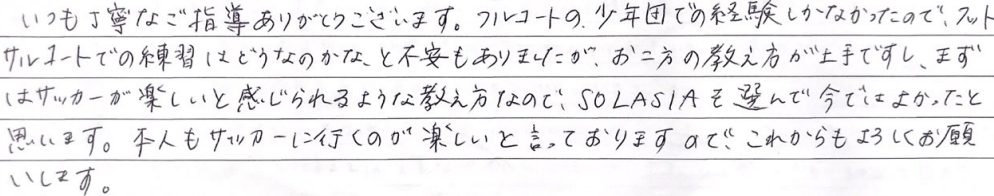 いつも丁寧なご指導ありがとうございます。フルコートの少年団での経験しかなかったので、フット
サルコートでの練習はどうなのかな、と不安もありましたが、お二方の教え方が上手ですし、まず
はサッカーが楽しいと感じられるような教え方なので、SOLASIAを選んで今ではよかったと
思います。本人もサッカーに行くのが楽しいと言っておりますので、これからもよろしくお願
いします。